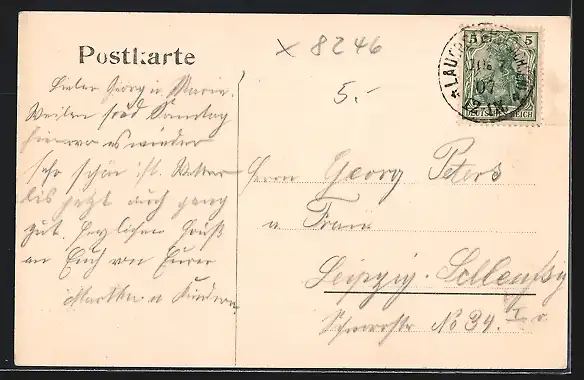 Postkarte
x 8246
5.-
5
LAUCH
07
DEUTSCHES REICH
Lieber Georg u Marie.
Weilen seid Sonntag
hier wo es wieder
sehr schön ist. Wetter
bis jetzt auch ganz
gut. Herzlichen Gruß
an Euch von Eurer
Martha u Kindern
Herrn Georg Peters
u Frau
Leipzig-Schleußig
No 39. I r